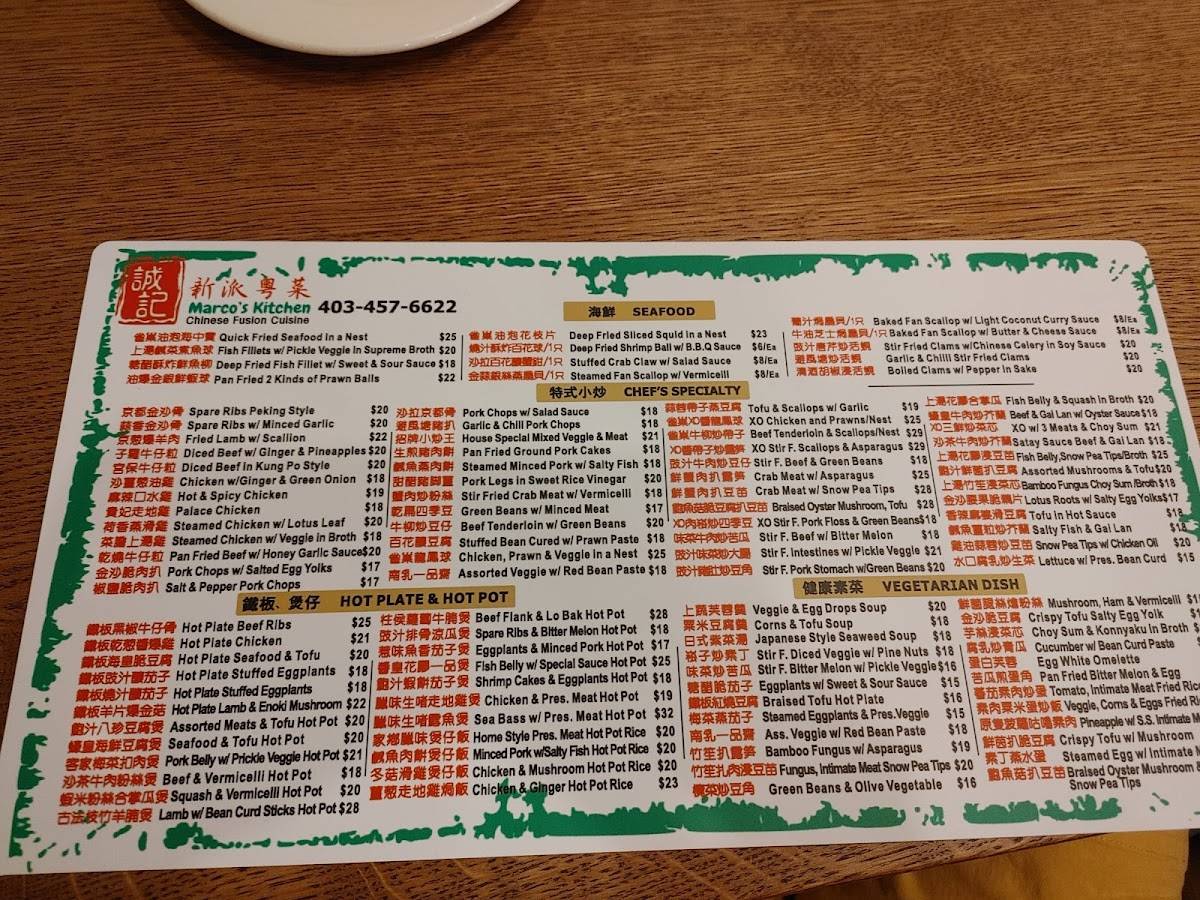 誠記
新派粵菜
Marco's Kitchen 403-457-6622
Chinese Fusion Cuisine
海鮮 SEAFOOD
雀巢油泡海中寶 Quick Fried Seafood in a Nest $25
上湯鹹菜煮魚球 Fish Fillets w/ Pickle Veggie in Supreme Broth $20
糖醋酥炸鮮魚柳 Deep Fried Fish Fillet w/ Sweet & Sour Sauce $18
油爆金銀鮮蝦球 Pan Fried 2 Kinds of Prawn Balls $22
雀巢油泡花枝片 Deep Fried Sliced Squid in a Nest $23
燒汁酥炸百花球/1只 Deep Fried Shrimp Ball w/ B.B.Q Sauce $6/Ea
沙拉百花釀蟹鉗/1只 Stuffed Crab Claw w/ Salad Sauce $8/Ea
金蒜銀絲蒸扇貝/1只 Steamed Fan Scallop w/ Vermicelli $8/Ea
葡汁焗扇貝/1只 Baked Fan Scallop w/ Light Coconut Curry Sauce $8/Ea
牛油芝士焗扇貝/1只 Baked Fan Scallop w/ Butter & Cheese Sauce $8/Ea
豉汁唐芹炒活蜆 Stir Fried Clams w/Chinese Celery in Soy Sauce $20
避風塘炒活蜆 Garlic & Chilli Stir Fried Clams $20
清酒胡椒浸活蜆 Boiled Clams w/ Pepper in Sake $20
特式小炒 CHEF'S SPECIALTY
京都金沙骨 Spare Ribs Peking Style $20
蒜香金沙骨 Spare Ribs w/ Minced Garlic $20
京葱爆羊肉 Fried Lamb w/ Scallion $22
子蘿牛仔粒 Diced Beef w/ Ginger & Pineapples $20
宮保牛仔粒 Diced Beef in Kung Po Style $20
沙薑葱油雞 Chicken w/Ginger & Green Onion $18
麻辣口水雞 Hot & Spicy Chicken $19
貴妃走地雞 Palace Chicken $18
荷香蒸滑雞 Steamed Chicken w/ Lotus Leaf $20
菜膽上湯雞 Steamed Chicken w/ Veggie in Broth $18
乾燒牛仔粒 Pan Fried Beef w/ Honey Garlic Sauce $20
金沙脆肉扒 Pork Chops w/ Salted Egg Yolks $17
椒鹽脆肉扒 Salt & Pepper Pork Chops $17
沙拉京都骨 Pork Chops w/ Salad Sauce $18
避風塘豬扒 Garlic & Chill Pork Chops $18
招牌小炒王 House Special Mixed Veggie & Meat $21
生煎豬肉餅 Pan Fried Ground Pork Cakes $18
鹹魚蒸肉餅 Steamed Minced Pork w/ Salty Fish $18
甜醋豬腳薑 Pork Legs in Sweet Rice Vinegar $20
蟹肉炒粉絲 Stir Fried Crab Meat w/ Vermicelli $18
乾煸四季豆 Green Beans w/ Minced Meat $17
牛柳炒豆仔 Beef Tenderloin w/ Green Beans $20
百花釀豆腐 Stuffed Bean Cured w/ Prawn Paste $18
雀巢龍鳳球 Chicken, Prawn & Veggie in a Nest $25
南乳一品齋 Assorted Veggie w/ Red Bean Paste $18
蒜蓉帶子蒸豆腐 Tofu & Scallops w/ Garlic $19
雀巢XO醬龍鳳球 XO Chicken and Prawns/Nest $25
雀巢牛柳炒帶子 Beef Tenderloin & Scallops/Nest $29
XO醬帶子炒露筍 XO Stir F. Scallops & Asparagus $29
豉汁牛肉炒豆仔 Stir F. Beef & Green Beans $18
鮮蟹肉扒露筍 Crab Meat w/ Asparagus $25
鮮蟹肉扒豆苗 Crab Meat w/ Snow Pea Tips $28
鮑魚菇脆豆腐扒豆苗 Braised Oyster Mushroom, Tofu $28
XO肉崧炒四季豆 XO Stir F. Pork Floss & Green Beans $18
味菜牛肉炒苦瓜 Stir F. Beef w/ Bitter Melon $18
豉汁味菜炒大腸 Stir F. Intestines w/ Pickle Veggie $21
豉汁豬肚炒豆角 Stir F. Pork Stomach w/Green Beans $20
上湯花膠合掌瓜 Fish Belly & Squash In Broth $20
蠔皇牛肉炒芥蘭 Beef & Gai Lan w/ Oyster Sauce $18
XO三鮮炒菜芯 XO w/ 3 Meats & Choy Sum $21
沙茶牛肉炒芥蘭 Satay Sauce Beef & Gai Lan $18
上湯花膠浸豆苗 Fish Belly,Snow Pea Tips/Broth $25
鮑汁鮮菌扒豆腐 Assorted Mushrooms & Tofu $20
上湯竹笙浸菜芯 Bamboo Fungus Choy Sum /Broth $18
金沙脆藕片 Lotus Roots w/ Salty Egg Yolks $17
Tofu in Hot Sauce $18
鹹魚薑粒炒芥蘭 Salty Fish & Gai Lan $18
雞油蒜蓉炒豆苗 Snow Pea Tips w/ Chicken Oil $20
水口腐乳炒生菜 Lettuce w/ Pres. Bean Curd $15
鐵板、煲仔 HOT PLATE & HOT POT
鐵板黑椒牛仔骨 Hot Plate Beef Ribs $25
鐵板乾葱醬爆雞 Hot Plate Chicken $21
鐵板海皇脆豆腐 Hot Plate Seafood & Tofu $20
鐵板豉汁釀茄子 Hot Plate Stuffed Eggplants $18
鐵板燒汁釀茄子 Hot Plate Stuffed Eggplants $18
鐵板羊片爆金菇 Hot Plate Lamb & Enoki Mushroom $22
鮑汁八珍豆腐煲 Assorted Meats & Tofu Hot Pot $20
蠔皇海鮮豆腐煲 Seafood & Tofu Hot Pot $20
客家梅菜扣肉煲 Pork Belly w/ Prickle Veggie Hot Pot $21
沙茶牛肉粉絲煲 Beef & Vermicelli Hot Pot $18
蝦米粉絲合掌瓜煲 Squash & Vermicelli Hot Pot $20
古法枝竹羊腩煲 Lamb w/ Bean Curd Sticks Hot Pot $28
柱侯蘿蔔牛腩煲 Beef Flank & Lo Bak Hot Pot $28
豉汁排骨涼瓜煲 Spare Ribs & Bitter Melon Hot Pot $18
惹味魚香茄子煲 Eggplants & Minced Pork Hot Pot $17
醬皇花膠一品煲 Fish Belly w/ Special Sauce Hot Pot $25
鮑汁蝦餅茄子煲 Shrimp Cakes & Eggplants Hot Pot $18
臘味生啫走地雞煲 Chicken & Pres. Meat Hot Pot $19
臘味生啫鱸魚煲 Sea Bass w/ Pres. Meat Hot Pot $32
家鄉臘味煲仔飯 Home Style Pres. Meat Hot Pot Rice $20
鹹魚肉餅煲仔飯 Minced Pork w/Salty Fish Hot Pot Rice $20
冬菇滑雞煲仔飯 Chicken & Mushroom Hot Pot Rice $20
薑葱走地雞焗飯 Chicken & Ginger Hot Pot Rice $23
健康素菜 VEGETARIAN DISH
上蔬芙蓉羹 Veggie & Egg Drops Soup $20
粟米豆腐羹 Corns & Tofu Soup $18
日式紫菜湯 Japanese Style Seaweed Soup $18
崧子炒素丁 Stir F. Diced Veggie w/ Pine Nuts $18
味菜炒苦瓜 Stir F. Bitter Melon w/ Pickle Veggie $16
糖醋脆茄子 Eggplants w/ Sweet & Sour Sauce $15
鐵板紅燒豆腐 Braised Tofu Hot Plate $16
梅菜蒸茄子 Steamed Eggplants & Pres.Veggie $15
南乳一品齋 Ass. Veggie w/ Red Bean Paste $18
竹笙扒露筍 Bamboo Fungus w/ Asparagus $19
竹笙扎肉浸豆苗 Fungus, Intimate Meat Snow Pea Tips $20
欖菜炒豆角 Green Beans & Olive Vegetable $16
Mushroom, Ham & Vermicelli
金沙脆豆腐 Crispy Tofu Salty Egg Yolk
芋絲浸菜芯 Choy Sum & Konnyaku In Broth
腐乳炒青瓜 Cucumber w/ Bean Curd Paste
蛋白芙蓉 Egg White Omelette
苦瓜煎蛋角 Pan Fried Bitter Melon & Egg
蕃茄素肉炒蛋 Tomato, Intimate Meat Fried Rice
素肉粟米蛋炒飯 Veggie, Corns & Eggs Fried
原隻菠蘿咕嚕素肉 Pineapple w/ S.S. Intimate
鮮菌扒脆豆腐 Crispy Tofu w/ Mushroom
素丁蒸水蛋 Steamed Egg w/ Intimate
鮑魚菇扒豆苗 Braised Oyster Mushroom &
Snow Pea Tips